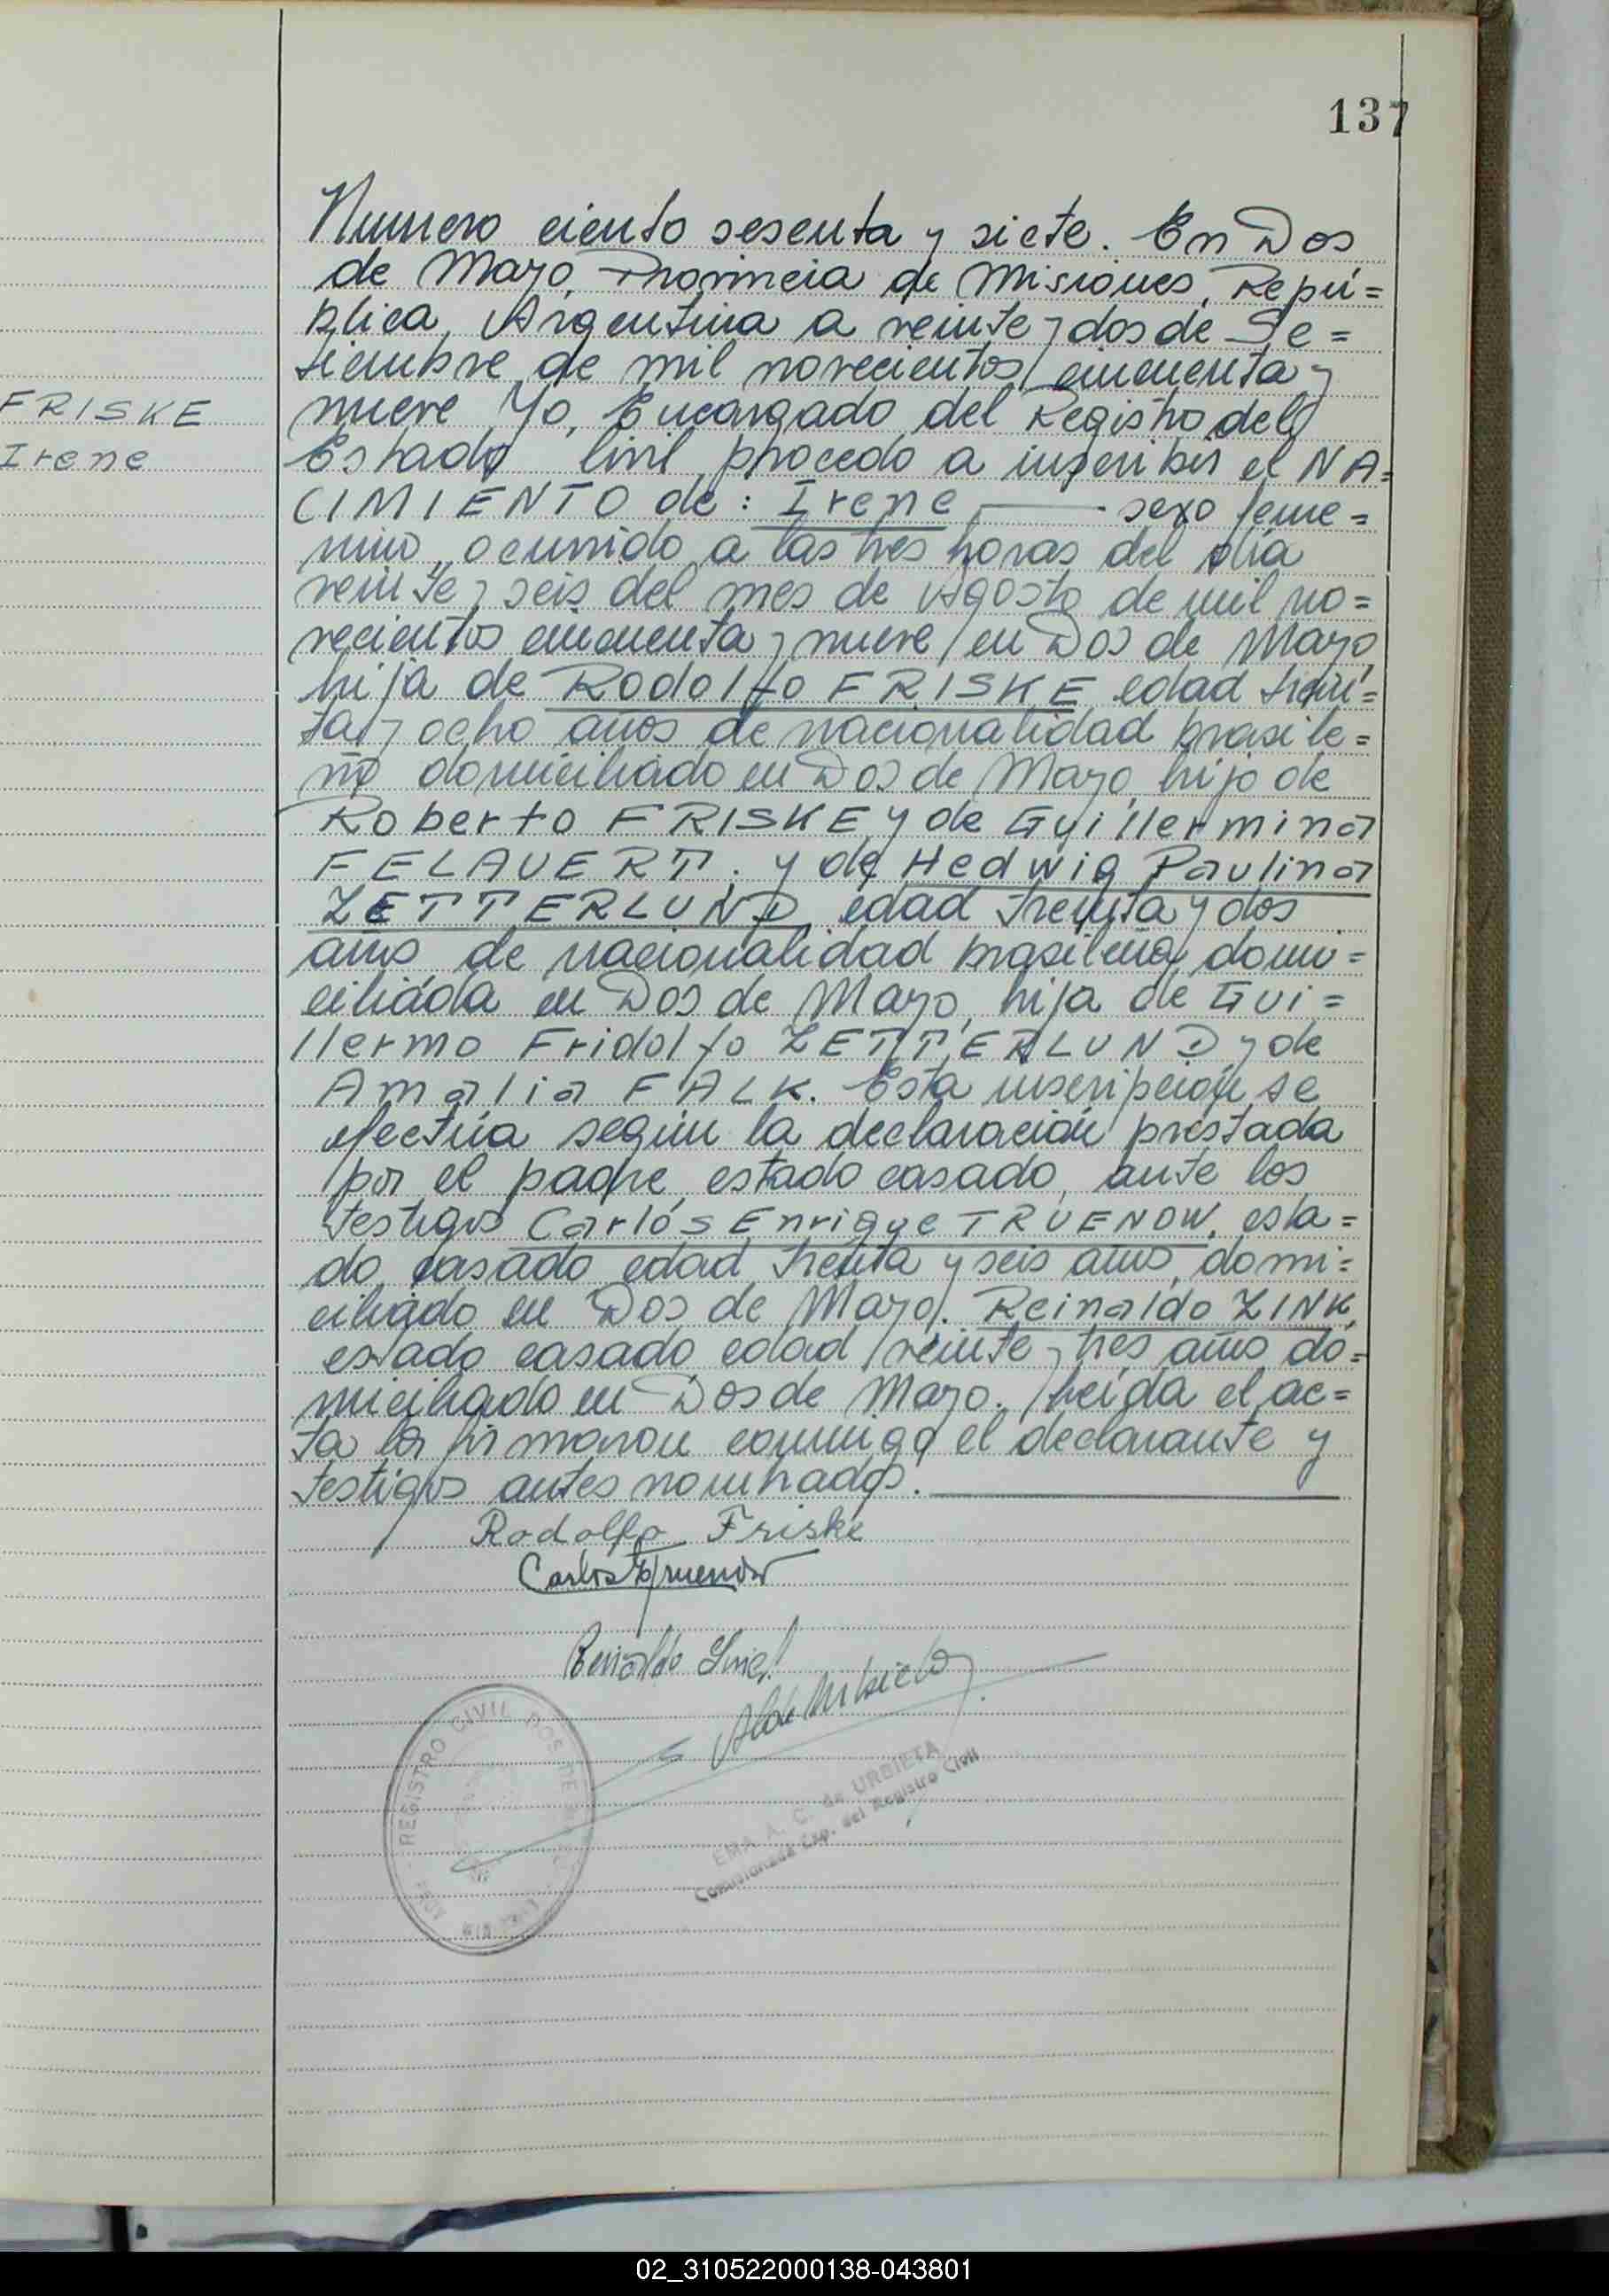 137
Numero ciento sesenta y siete. En Dos
de Mayo, Provincia de Misiones, Repú=
blica, Argentina a veinte y dos de Se=
tiembre de mil novecientos cincuenta y
nueve Yo, Encargado del Registro del
FRISKE
Irene
Estado Civil, procedo a inscribir el NA=
CIMIENTO de: Irene — sexo feme=
nino, ocurrido a las tres horas del día
veinte y seis del mes de Agosto de mil no=
vecientos cincuenta y nueve en Dos de Mayo,
hija de Rodolfo FRISKE edad trein=
ta y ocho años de nacionalidad brasile=
ño domiciliado en Dos de Mayo, hijo de
Roberto FRISKE y de Guillermina
FELAVERT. y de Hedwig Paulina
ZETTERLUND, edad treinta y dos
años de nacionalidad brasileña, domi=
ciliada en Dos de Mayo, hija de Gui=
llermo Fridolfo ZETTERLUND y de
Amalia FALK. Esta inscripción se
efectúa según la declaración prestada
por el padre, estado casado, ante los
testigos Carlós Enrique TRUENOW, esta=
do casado edad treinta y seis años, domi=
ciliado en Dos de Mayo. Reinaldo ZINK,
estado casado edad veinte y tres años do=
miciliado en Dos de Mayo. Leída el ac=
ta la firmaron conmigo el declarante y
testigos antes nombrados.
Rodolfo Friske
Carlos E Truenow
Reinaldo
REGISTRO CIVIL DOS DE
EMA A. C. de URBIETA
Comisionada Exp. del Registro Civil
02_310522000138-043801